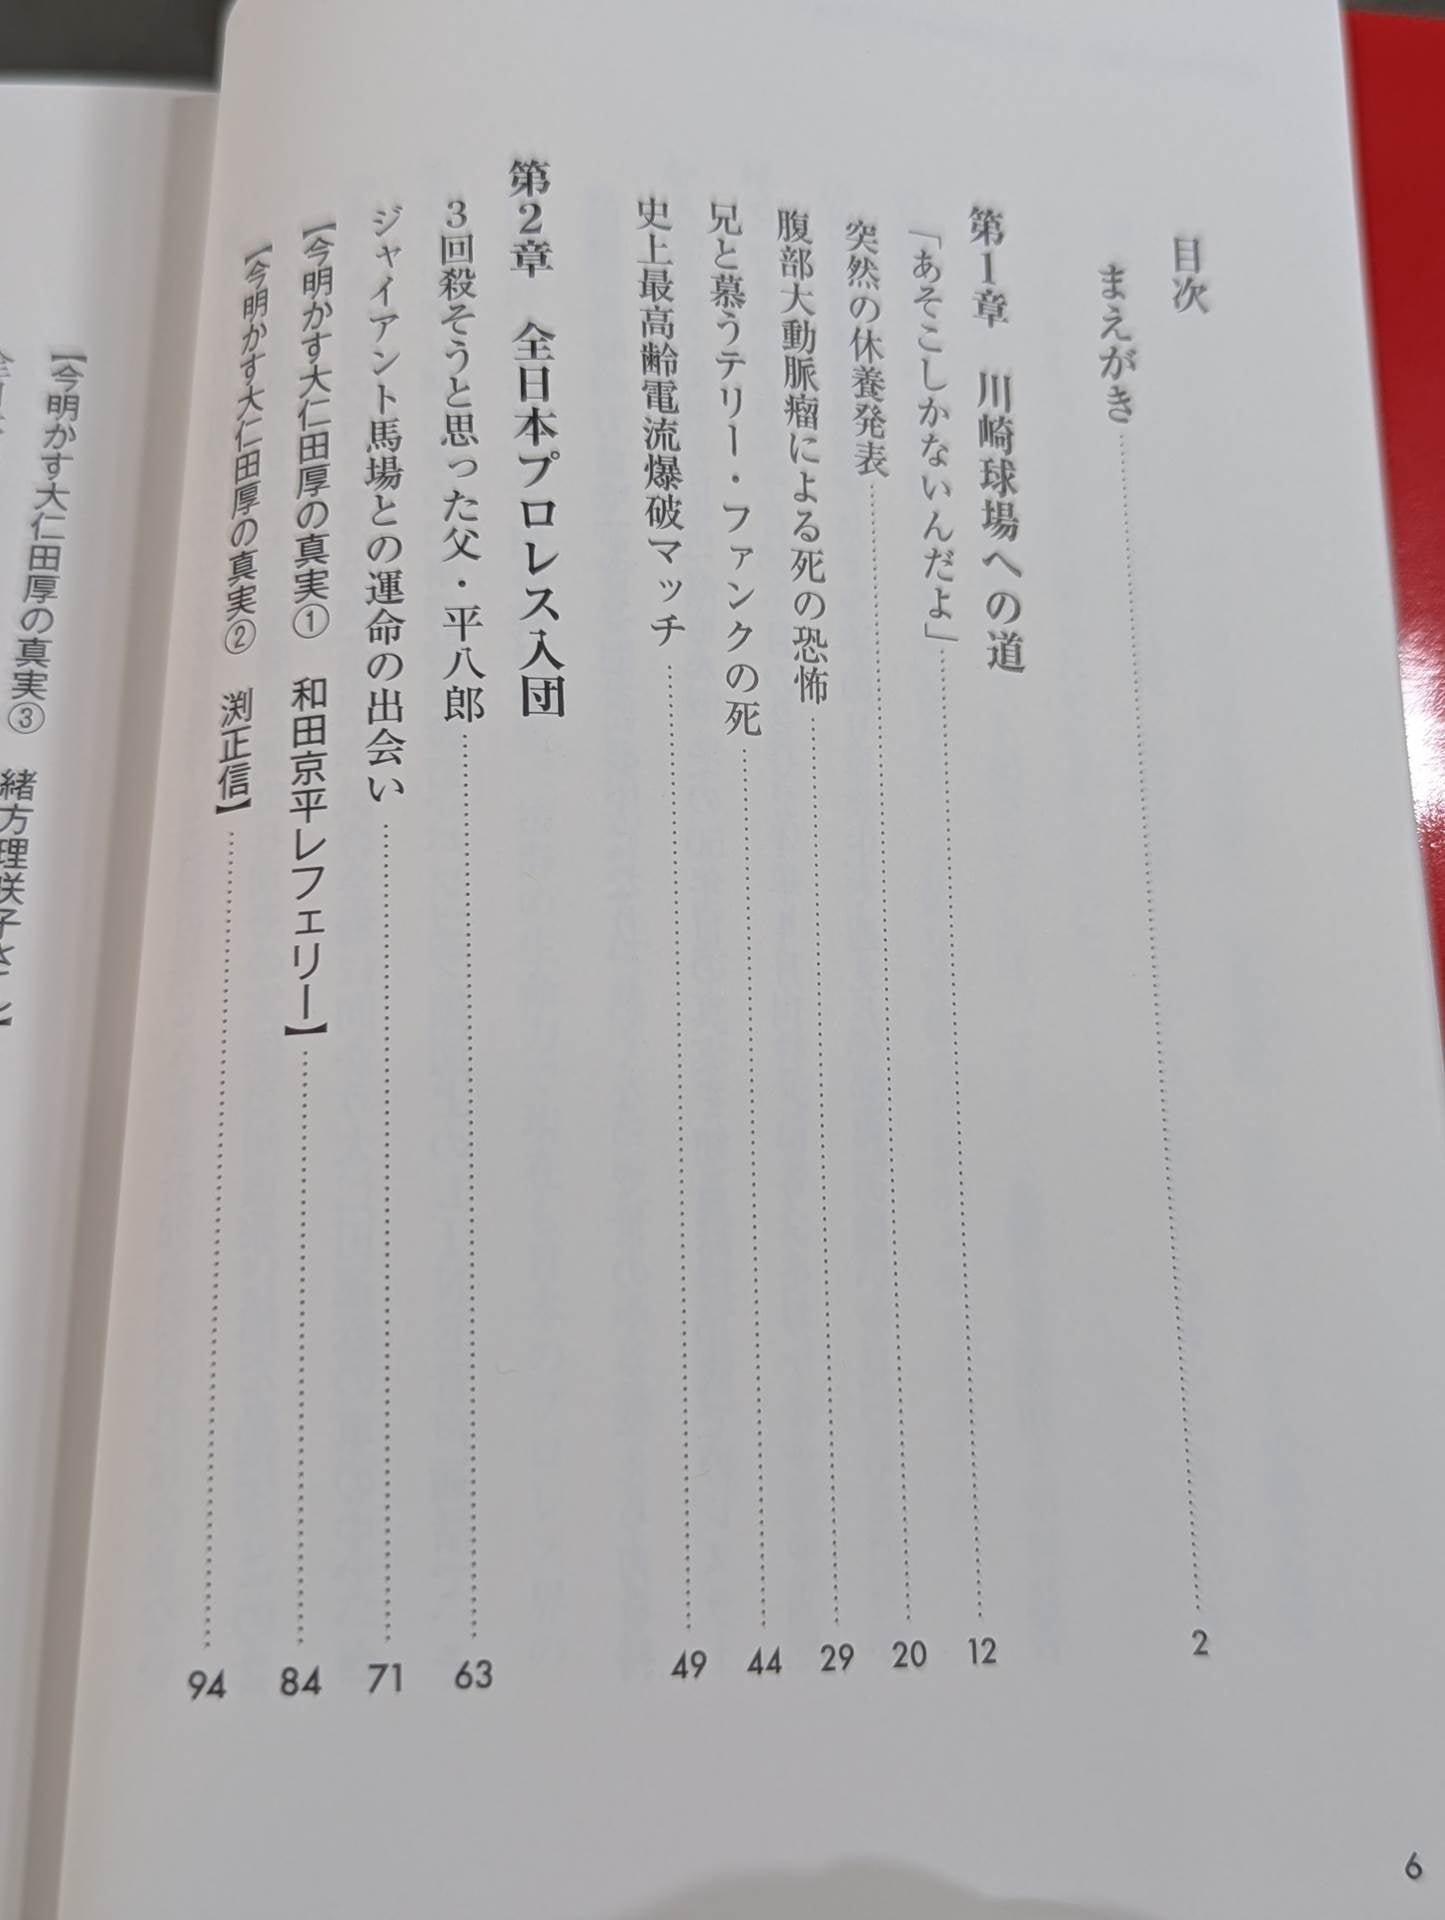 目次
まえがき……2
第1章　川崎球場への道
「あそこしかないんだよ」……12
突然の休養発表……20
腹部大動脈瘤による死の恐怖……29
兄と慕うテリー・ファンクの死……44
史上最高齢電流爆破マッチ……49
第2章　全日本プロレス入団
3回殺そうと思った父・平八郎……63
ジャイアント馬場との運命の出会い……71
【今明かす大仁田厚の真実①　和田京平レフェリー】……84
【今明かす大仁田厚の真実②　渕正信】……94
6
【今明かす大仁田厚の真実③　緒方理咲子さん】